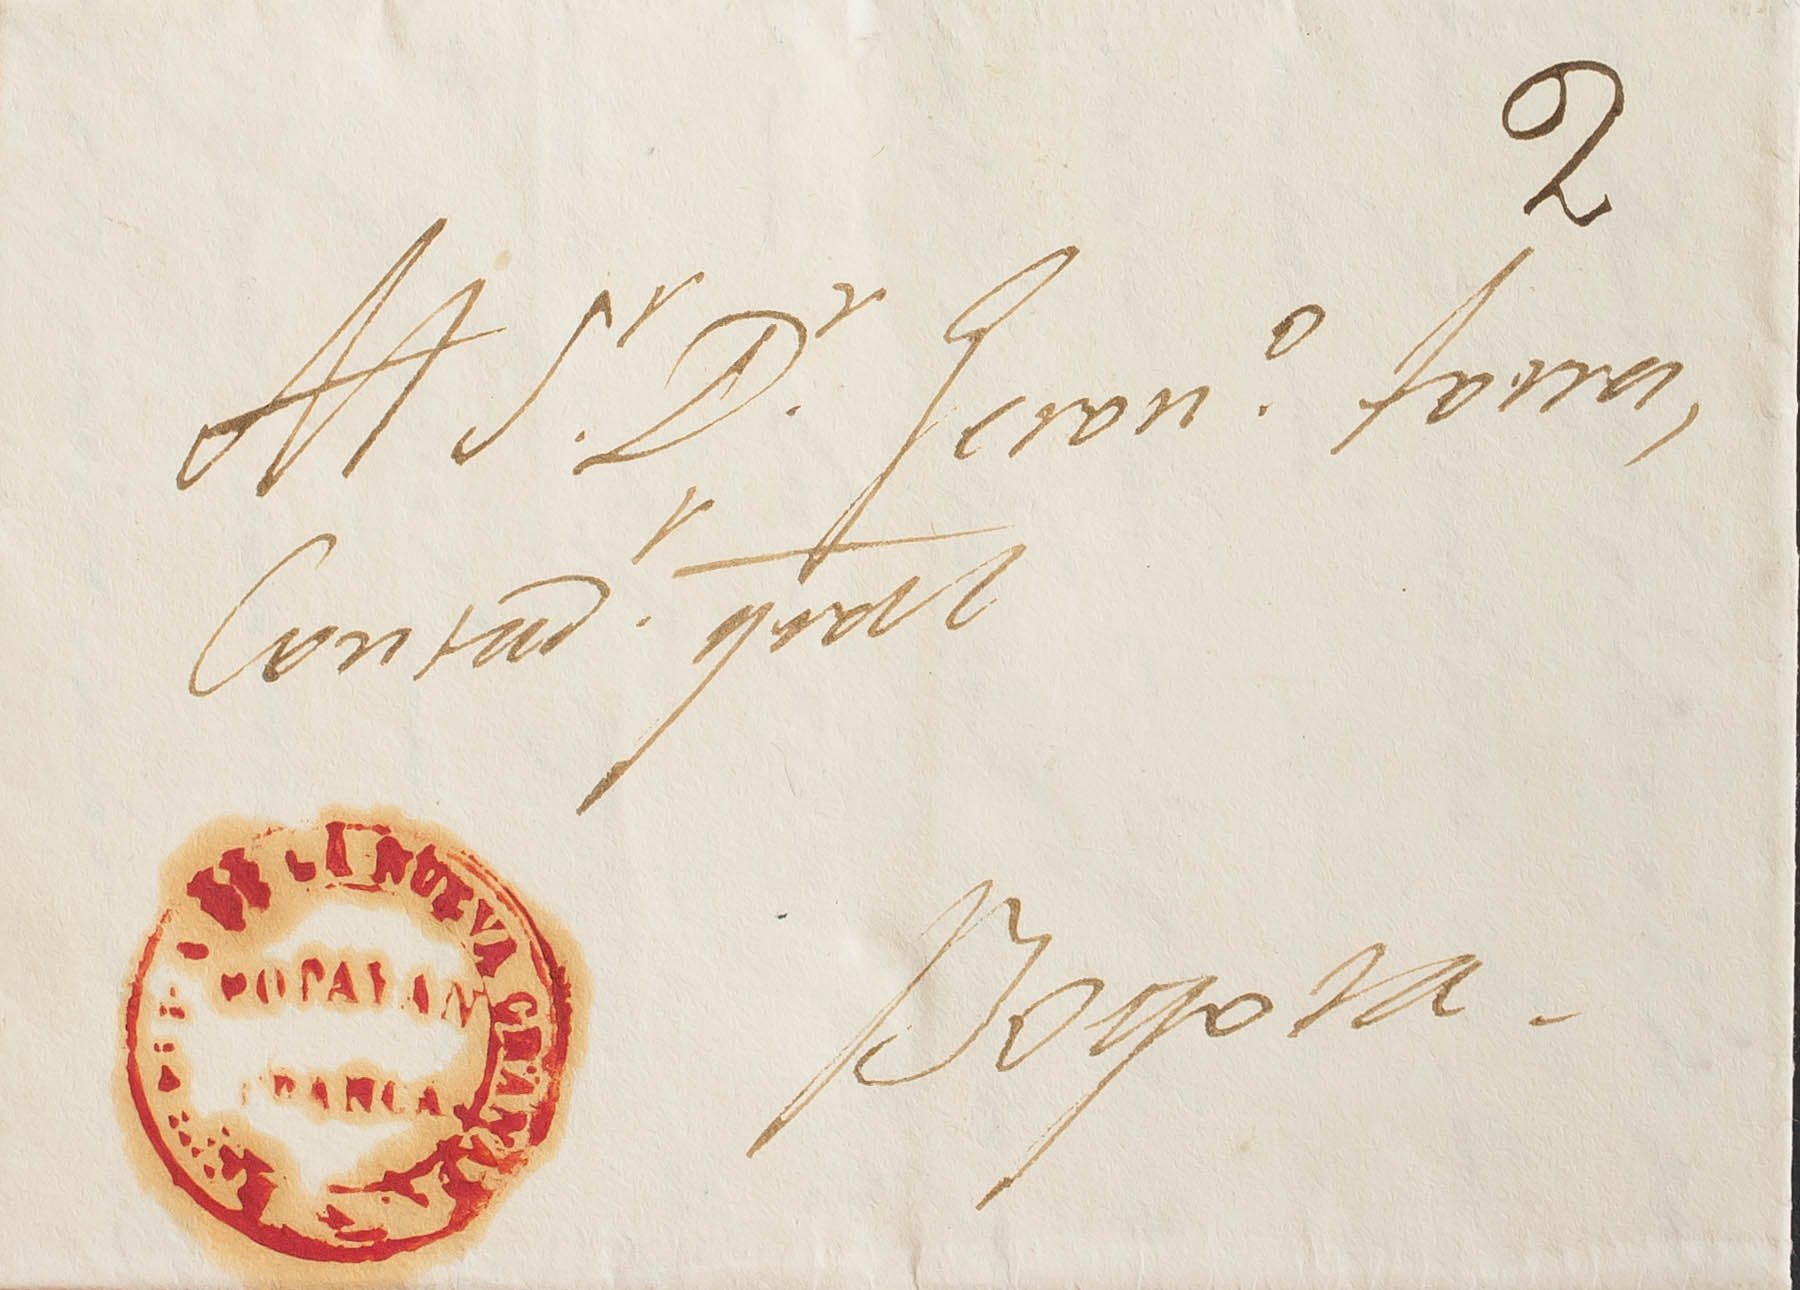 2
Al S.r D.r Geron.o Torres,
Contad.r gral
Bogota -
DE LA NUEVA GRANADA
POPAYAN
FRANCA